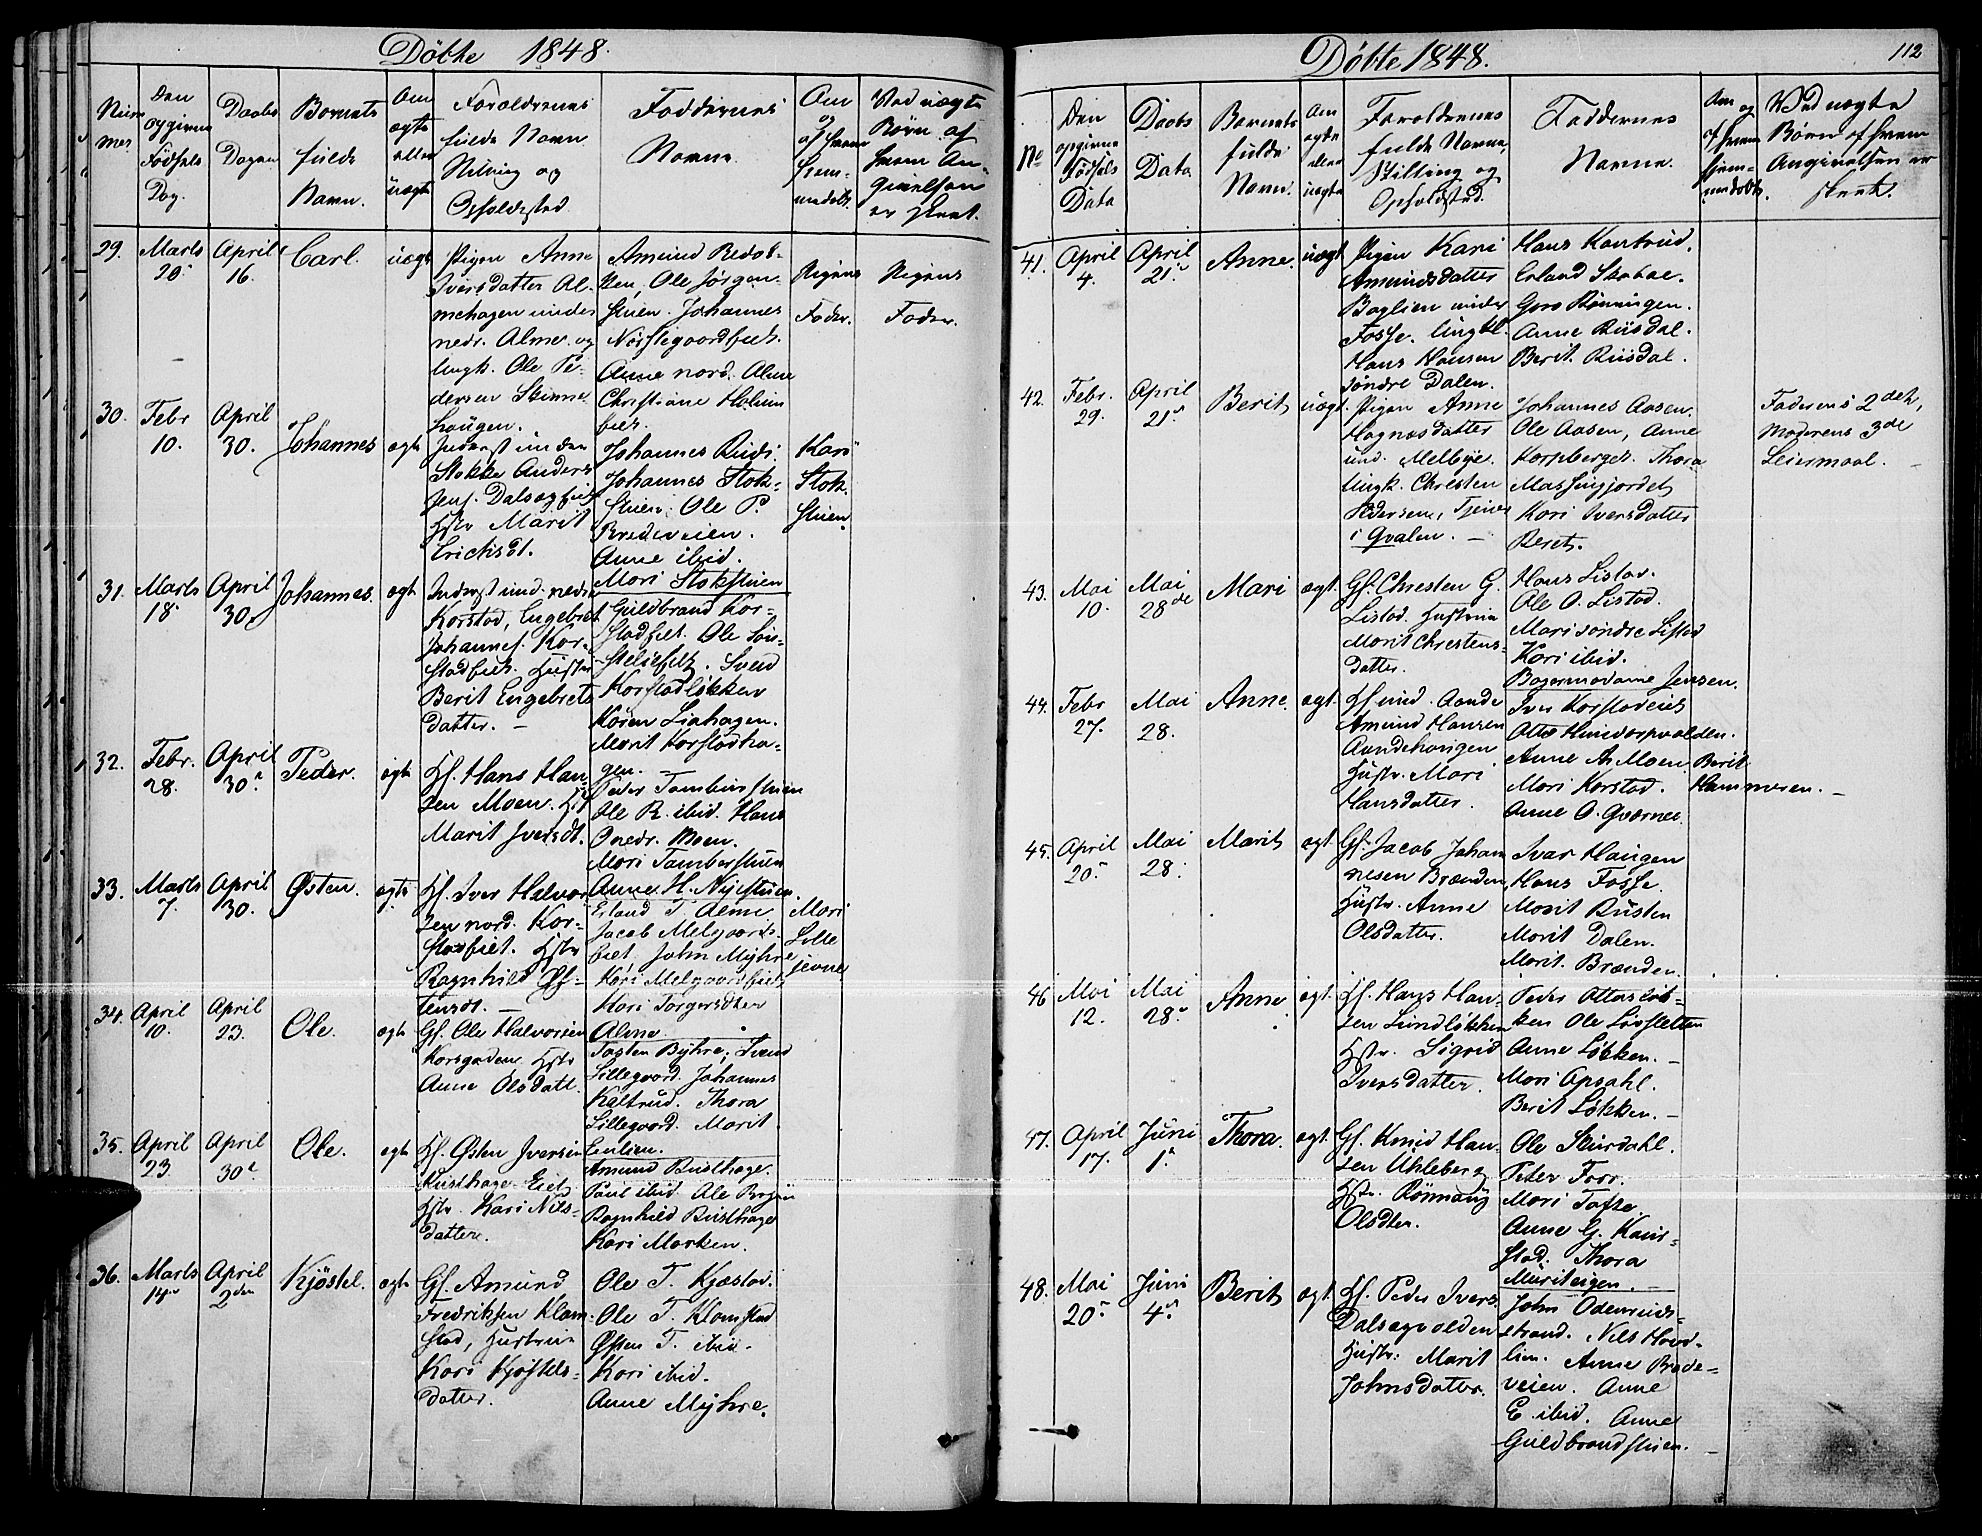 Døbte 1848.
Num
mer
Den
opgivne
Fødsels
Dag.
Daabs
Dagen
Barnets
fulde
Navn.
Om
ægte
eller
uægte
Forældrenes
fulde Navn
Stilling og
Opholdssted.
Faddernes
Navne.
Om
og
af hvem
hjem-
medøbt.
Ved uægte
Børn af
hvem An-
givelsen
er skeet.
29.
Marts
20.
April
16.
Carl.
uægt
Pigen Anne
Iversdatter Al-
mehagen under
nedr. Alme og
Ungk. Ole Pe-
dersen Skinne
haugen.
Amund
Ole Jørgen-
stuen. Johannes
Anne nord. Alme
Christiane Holum
eiet.
Pigens
Fader.
Pigens
Fader.
30.
Febr
10.
April
30.
Johannes
ægte
Inderst under
Stokke Anders
Jens. Dalsegeiet
Hstr Marit
Erichsdt.
Johannes Ruds.
Johannes Stok-
stuen. Ole P.
Bredeveien.
Anne ibid.
Mari Stokstuen
Kari
Stok-
stuen.
31.
Marts
18.
April
30.
Johannes.
ægt.
Inderst und. nedre
Korstad, Engebret
Johannes. Kor-
stadeiet. Hustr
Berit Engebrets
datter. —
Guldbrand Kor-
stadeiet. Ole
Svend
Korstadløkken
Karen Liahagen.
Marit Korstadha-
gen. —
32.
Febr.
28.
April
30.
Peder.
ægte
Gf. Hans Han-
sen Moen. Hst
Marit Iversdt.
Peder Tamburstuen
Ole R. ibid. Hans
O nedr. Moen.
Mari Tamberstuen
Anne H. Nyestuen.
33.
Marts
7.
April
30.
Østen.
ægte
Hf. Iver Halvor
sen nord. Kor-
stadeiet. Hstr
Ragnhild Øs-
tensdt. —
Erland T. Alme
Jacob Melgaards-
eiet, John Myhre
Kari Melgaardseiet
Kari Torgersdter
Alme.
Mari
Lille
jevne
34.
April
10.
April
23.
Ole.
ægte
Gf. Ole Halvorsen
Korsgaden. Hstr
Anne Olsdatt.
Tosten Byhre, Svend
Lillegaard. Johannes
Kaltrud. Thora
Lillegaard. Marit
35.
April
23.
April
30.
Ole.
ægte
Hf. Østen Iversen
Rusthage Eiet
Hstr. Kari Nils-
datter.
Amund Rusthage.
Paul ibid. Ole
Ragnhild Rusthage
Kari Marken.
36.
Marts
14.
April
2den
Kjøstel.
ægte
Gf. Amund
Fredriksen Klom-
stad, Hustrue
Kari Kjøstels-
datter.
Ole T. Kjæstad.
Ole T. Klomstad
Østen T. ibid.
Kari ibid.
Anne Myhre.
Døbte 1848.
112
No
Den
opgivne
Fødsels
Data
Daabs
Data
Barnets
fulde
Navn.
Om
ægte
eller
uægte
Forældrenes
fulde Navne,
Stilling og
Opholdsted.
Faddernes
Navne.
Om og
af hvem
hjem-
medøbt.
Ved uægte
Børn af hvem
Angivelsen er
skeet.
41.
April
4.
April
21.
Anne.
uægt
Pigen Kari
Amundsdatter
Baglien under
Fosse. Ungkl.
Hans Hansen
søndre Dalen.
Hans Kantrud.
Erland
Goro Rønningen.
Anne Riisdal.
Berit Riisdal.
42.
Febr.
29.
April
21.
Berit
uægt.
Pigen Anne
Hagnæsdatter
und. Melbye.
Ungk. Christen
Pedersen, Tjener
i Qvalen. —
Johannes Aasen.
Ole Aasen, Anne
Korpberget. Thora
Massingjordet
Kari Iversdatter
Beret.
Faderens 2det,
Moderens 3de
Leiermaal. —
43.
Mai
10.
Mai
28de
Mari
ægt.
Gf. Chresten G.
Listad. Hustrue
Marit Chrestens-
datter.
Hans Listad.
Ole O. Listad.
Mari søndre Listad
Kari ibid.
Bagermadame Jensen.
44.
Febr
27.
Mai
28.
Anne.
ægt.
Hf und. Aande
Amund Hansen
Aandehaugen
Hustr. Mari
Hansdatter.
Iver Korstadeiet
Otto Hundorpvolden.
Anne A. Moen
Mari Korstad.
Anne O. Qværnee.
Berit
Hammeren. —
45.
April
20.
Mai
28.
Marit
ægt.
Gf. Jacob Johan
nesen Brænden
Hustr. Anne
Olsdatter.
Ivar Haugen
Hans Fosse.
Marit Rusten
Marit Dalen.
Marit. Brænden.
46
Mai
12.
Mai
28.
Anne
ægt.
Hf. Hans Han-
sen Lundløkken
Hstr. Sigrid
Iversdatter.
Peder Ottarsløk-
ken Ole
Anne Løkken. —
Mari Opsahl.
Berit Løkken. —
47.
April
17.
Juni
1.
Thora.
ægt.
Gf. Knud Han-
sen Uhleberg
Hstr. Rønnaug
Olsdter.
Ole Skurdahl.
Peter Foor.
Mari Tofte.
Anne G. Kaus-
stad. Thora
48.
Mai
20.
Juni
4.
Berit
ægt
Hf. Peder Ivers
Dalsegvolden
Hustr. Marit
Johnsdatter.
John Odenruds-
strand. Nils Hood-
lien. Anne Brede-
veien. Anne
E. ibid. Anne
Guldbrandstuen. —